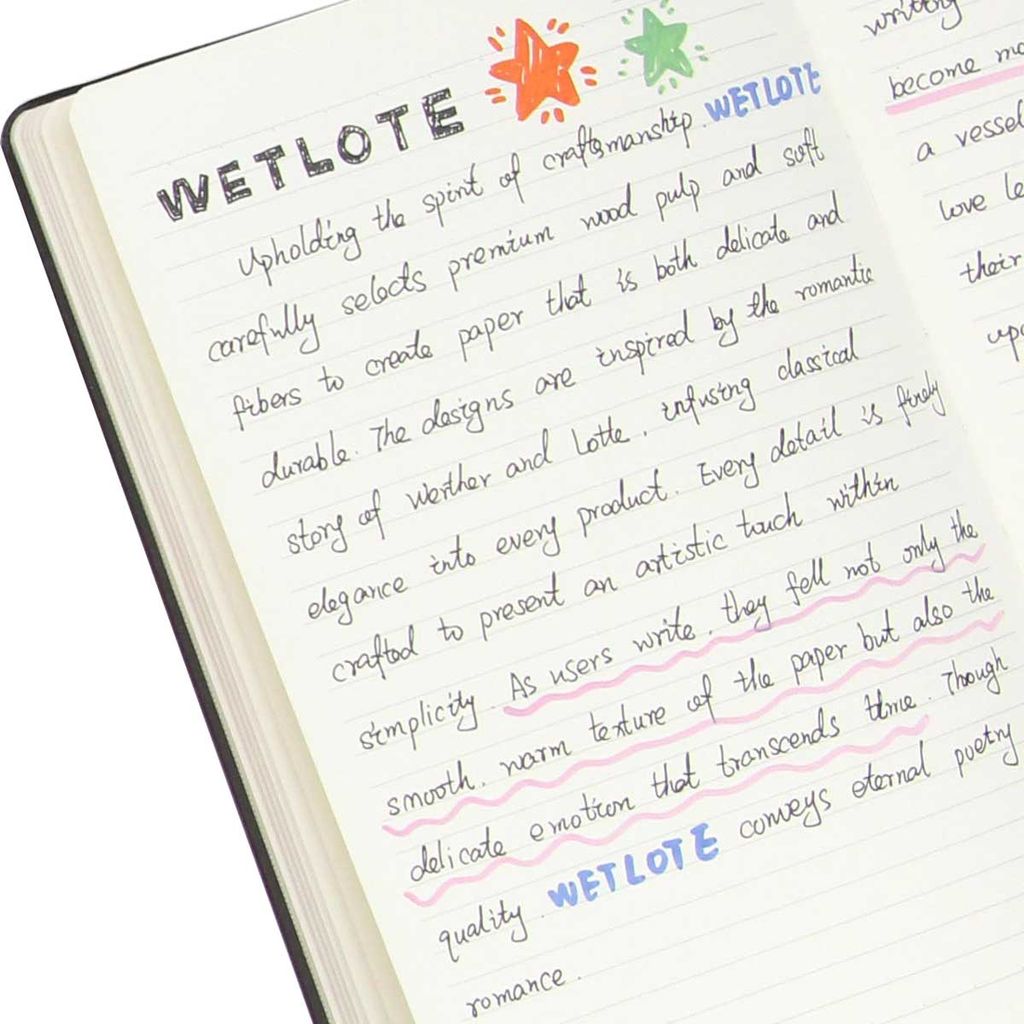 WETLOTE
Upholding the spirit of craftsmanship. WETLOTE
carefully selects premium wood pulp and soft
fibers to create paper that is both delicate and
durable. The designs are inspired by the romantic
story of Werther and Lotte, infusing classical
elegance into every product. Every detail is finely
crafted to present an artistic touch within
simplicity. As users write, they fell not only the
smooth, warm texture of the paper but also the
delicate emotion that transcends time. Though
quality. WETLOTE conveys eternal poetry
romance.
writing
become
a vessel
love
their